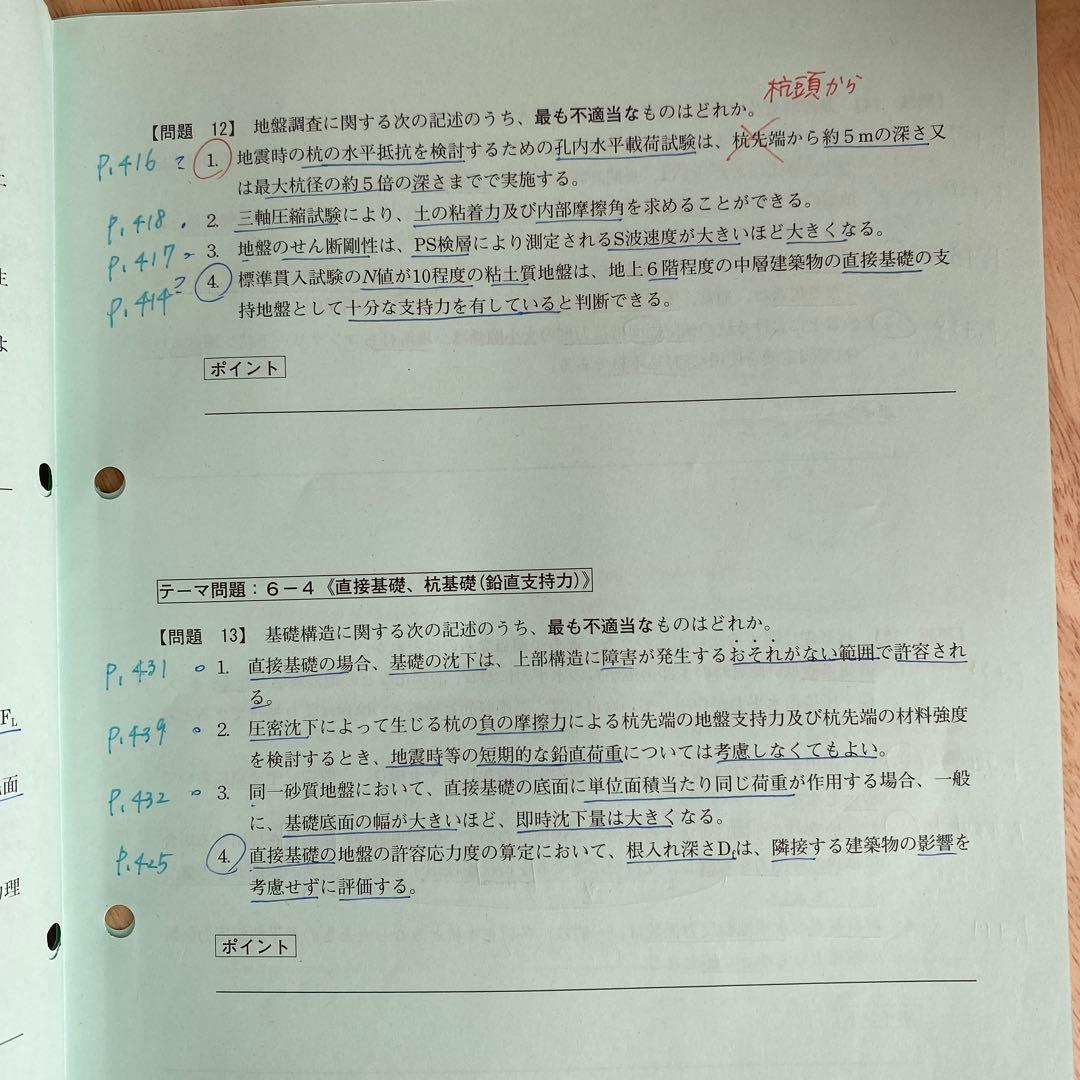 杭頭から
【問題 12】 地盤調査に関する次の記述のうち、最も不適当なものはどれか。
P.416 ? 1. 地震時の杭の水平抵抗を検討するための孔内水平載荷試験は、杭先端から約5mの深さ又
は最大杭径の約5倍の深さまでで実施する。
P.418 . 2. 三軸圧縮試験により、土の粘着力及び内部摩擦角を求めることができる。
P.417 3. 地盤のせん断剛性は、PS検層により測定されるS波速度が大きいほど大きくなる。
P.414 ? 4. 標準貫入試験のN値が10程度の粘土質地盤は、地上6階程度の中層建築物の直接基礎の支
持地盤として十分な支持力を有していると判断できる。
ポイント
テーマ問題：6－4《直接基礎、杭基礎(鉛直支持力)》
【問題 13】 基礎構造に関する次の記述のうち、最も不適当なものはどれか。
P.431 1. 直接基礎の場合、基礎の沈下は、上部構造に障害が発生するおそれがない範囲で許容され
る。
P.439 2. 圧密沈下によって生じる杭の負の摩擦力による杭先端の地盤支持力及び杭先端の材料強度
を検討するとき、地震時等の短期的な鉛直荷重については考慮しなくてもよい。
P.432 3. 同一砂質地盤において、直接基礎の底面に単位面積当たり同じ荷重が作用する場合、一般
に、基礎底面の幅が大きいほど、即時沈下量は大きくなる。
P.425 4. 直接基礎の地盤の許容応力度の算定において、根入れ深さDfは、隣接する建築物の影響を
考慮せずに評価する。
ポイント
FL
面
理